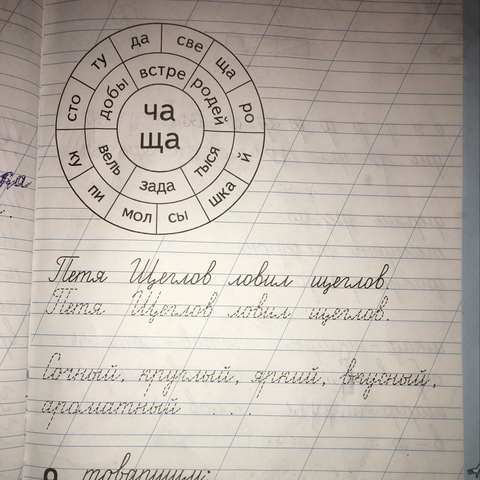 да
све
ту
ща
сто
ро
ку
й
пи
шка
мол
сы
встре
добы
родей
вель
тыся
зада
ча
ща
Петя Щеглов ловил щеглов.
Петя Щеглов ловил щеглов.
Сочный, круглый, яркий, вкусный,
ароматный . . .
товарищи: